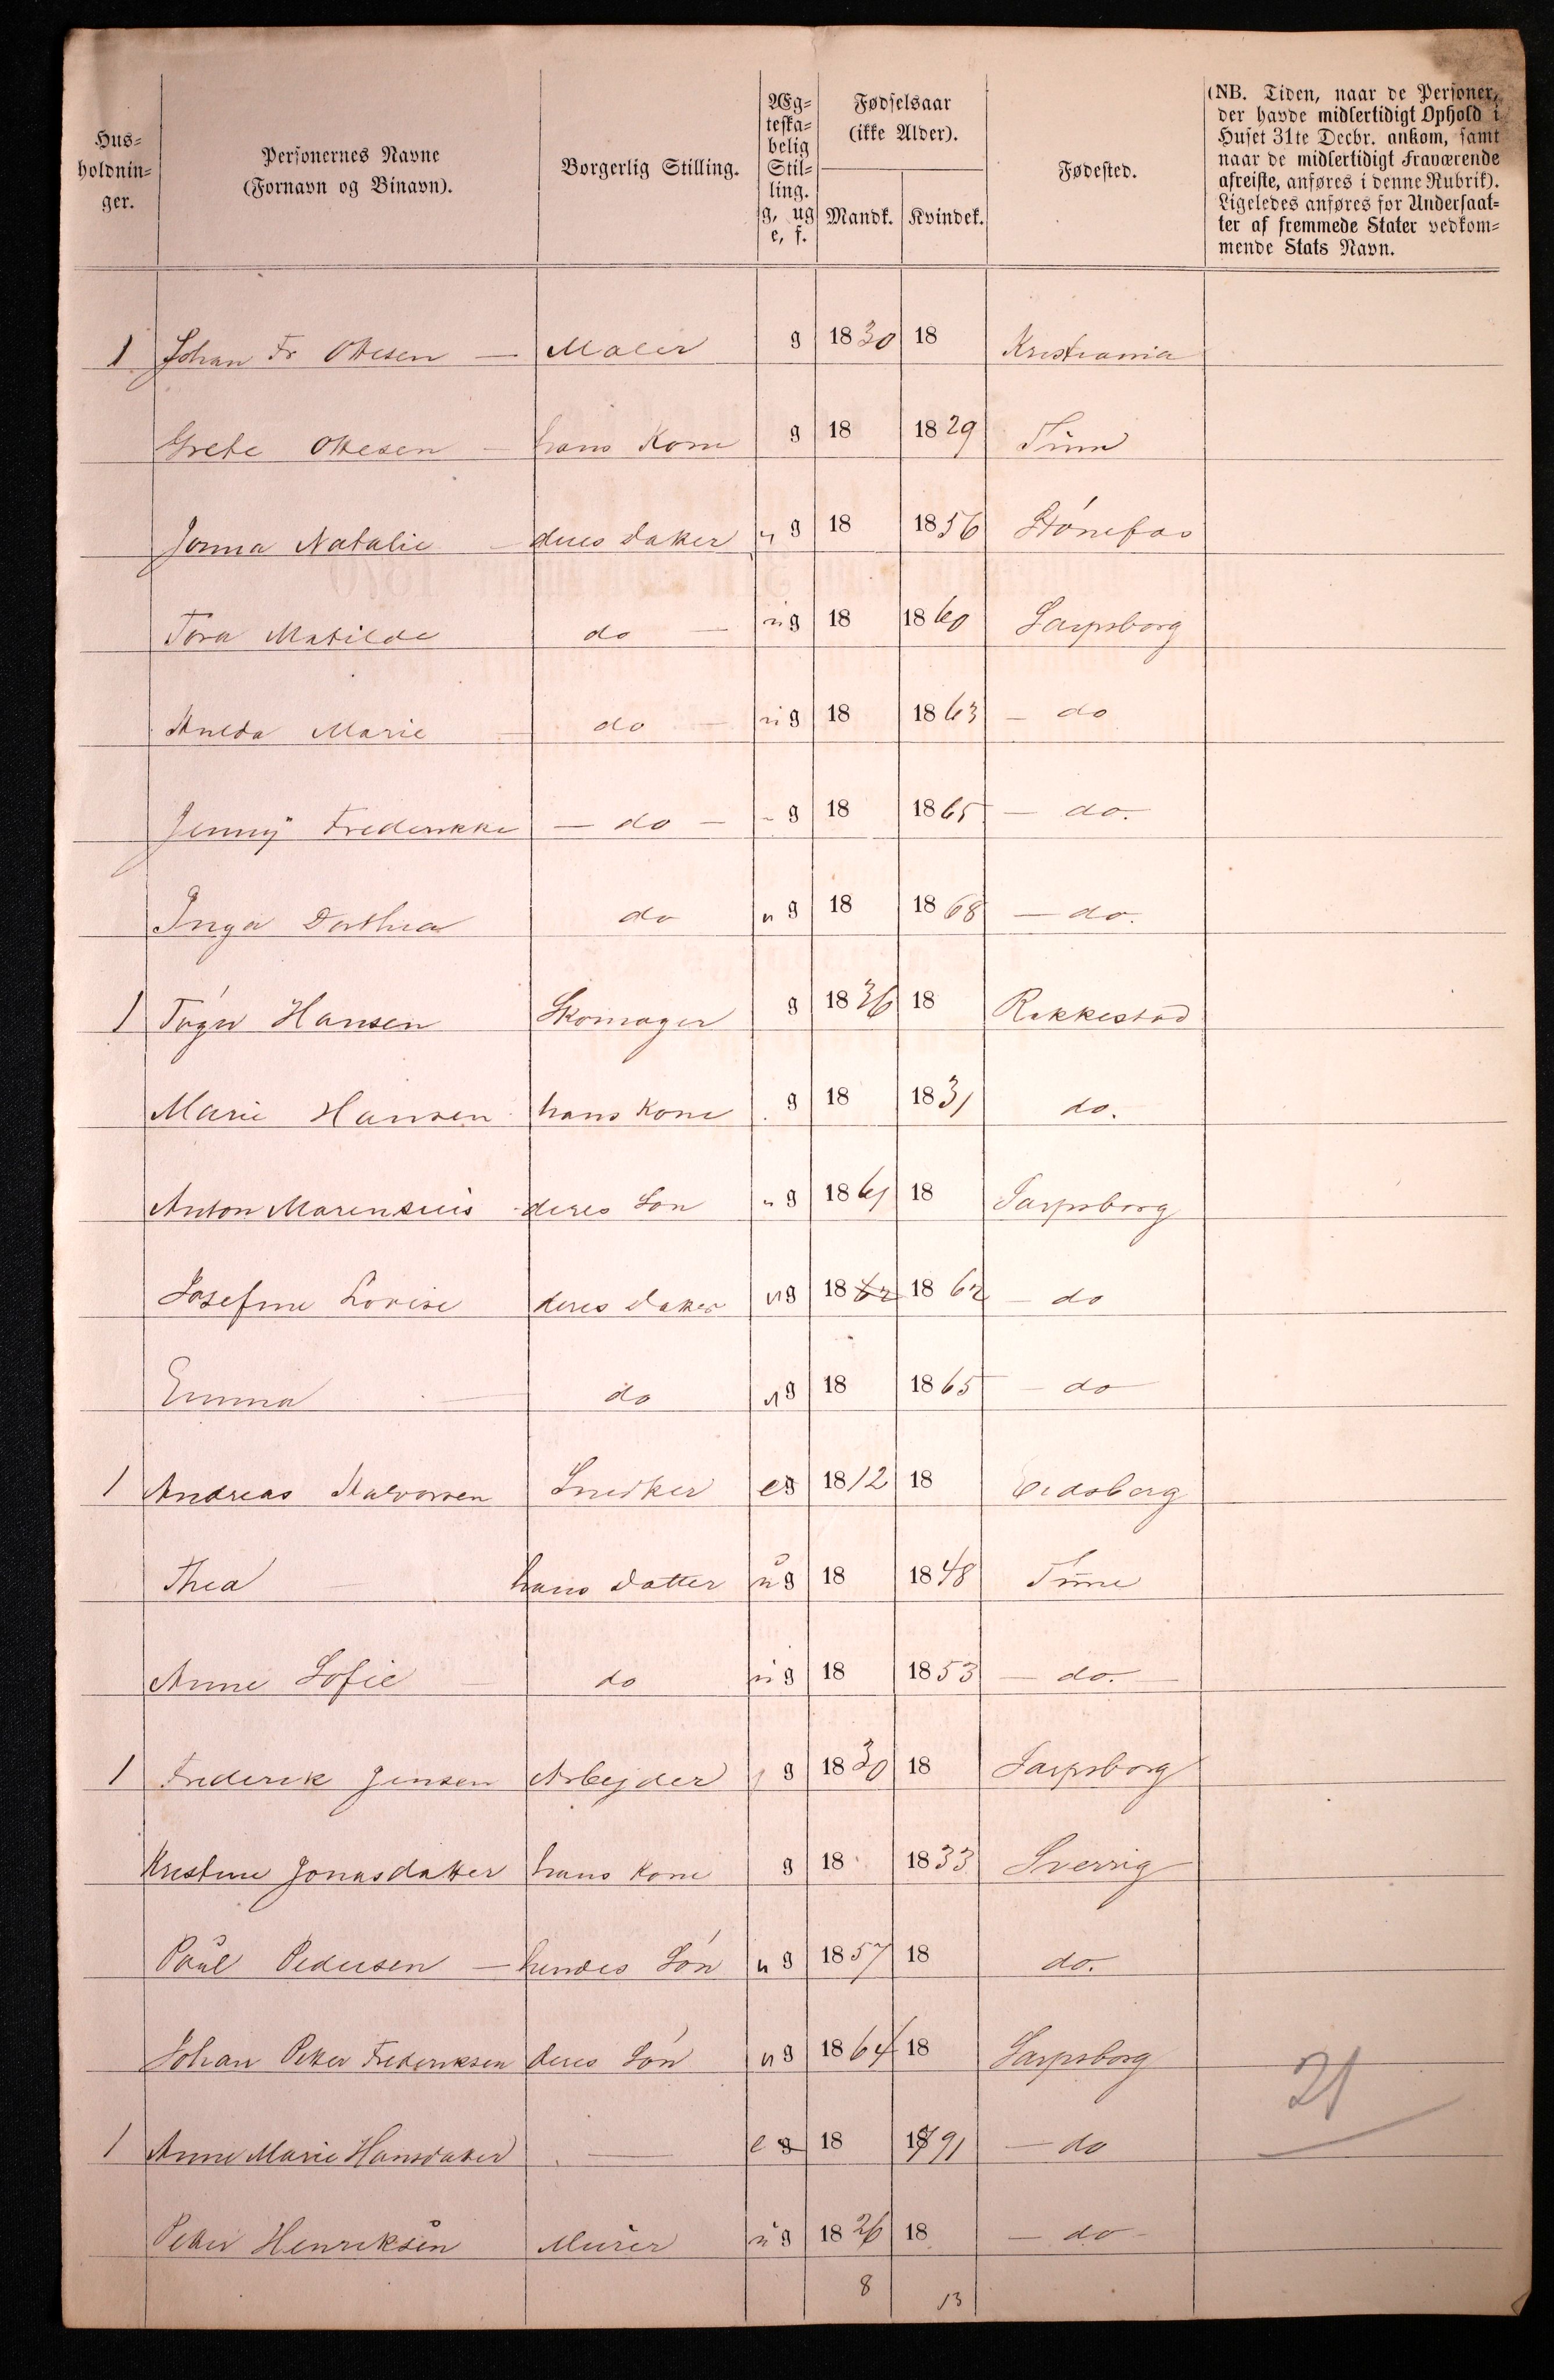 Hus-
holdnin-
ger.
Personernes Navne
(Fornavn og Binavn).
Borgerlig Stilling.
Æg-
teska-
belig
Stil-
ling.
g, ug
e, f.
Fødselsaar
(ikke Alder).
Mandk. Kvindek.
Fødested.
(NB. Tiden, naar de Personer,
der havde midlertidigt Ophold i
Huset 31te Decbr. ankom, samt
naar de midlertidigt Fraværende
afreiste, anføres i denne Rubrik).
Ligeledes anføres for Undersaat-
ter af fremmede Stater vedkom-
mende Stats Navn.
1 Johan Fr Ottesen — Maler g 1830 18 Kristiania
Grete Ottesen — hans Kone g 18 1829 Tune
Natalie deres Datter ug 18 1856 Hönefos
Tora Matilde do — ug 18 1860 Sarpsborg
Hulda Marie — do — ug 18 1863 — do
Jenny Frederikke — do — g 18 1865 — do.
Inga Dorthea do ug 18 1868 — do.
1 Hansen Skomager g 1836 18 Rakkestad
Marie Hansen hans Kone g 18 1831 do.
Anton Marensius deres Søn ug 1861 18 Sarpsborg
Josefine Lovise deres Datter ug 1862 1862 — do
Emma — do ug 18 1865 — do
1 Andreas Halvorsen Snedker eg 1812 18 Eidsberg
Thea — hans Datter ug 18 1848 Tune
Anne Sofie — do ug 18 1853 — do. —
1 Frederik Jensen Arbejder g 1830 18 Sarpsborg
Kristine Jonasdatter hans Kone g 18 1833 Sverrig
Paul Pedersen — hendes Sön ug 1857 18 do.
Johan Petter Frederiksen deres Sön ug 1864 18 Sarpsborg
1 Anne Marie Hansdatter — e g 18 1791 — do
Petter Henriksen Murer ug 1826 18 — do —
21
8 13